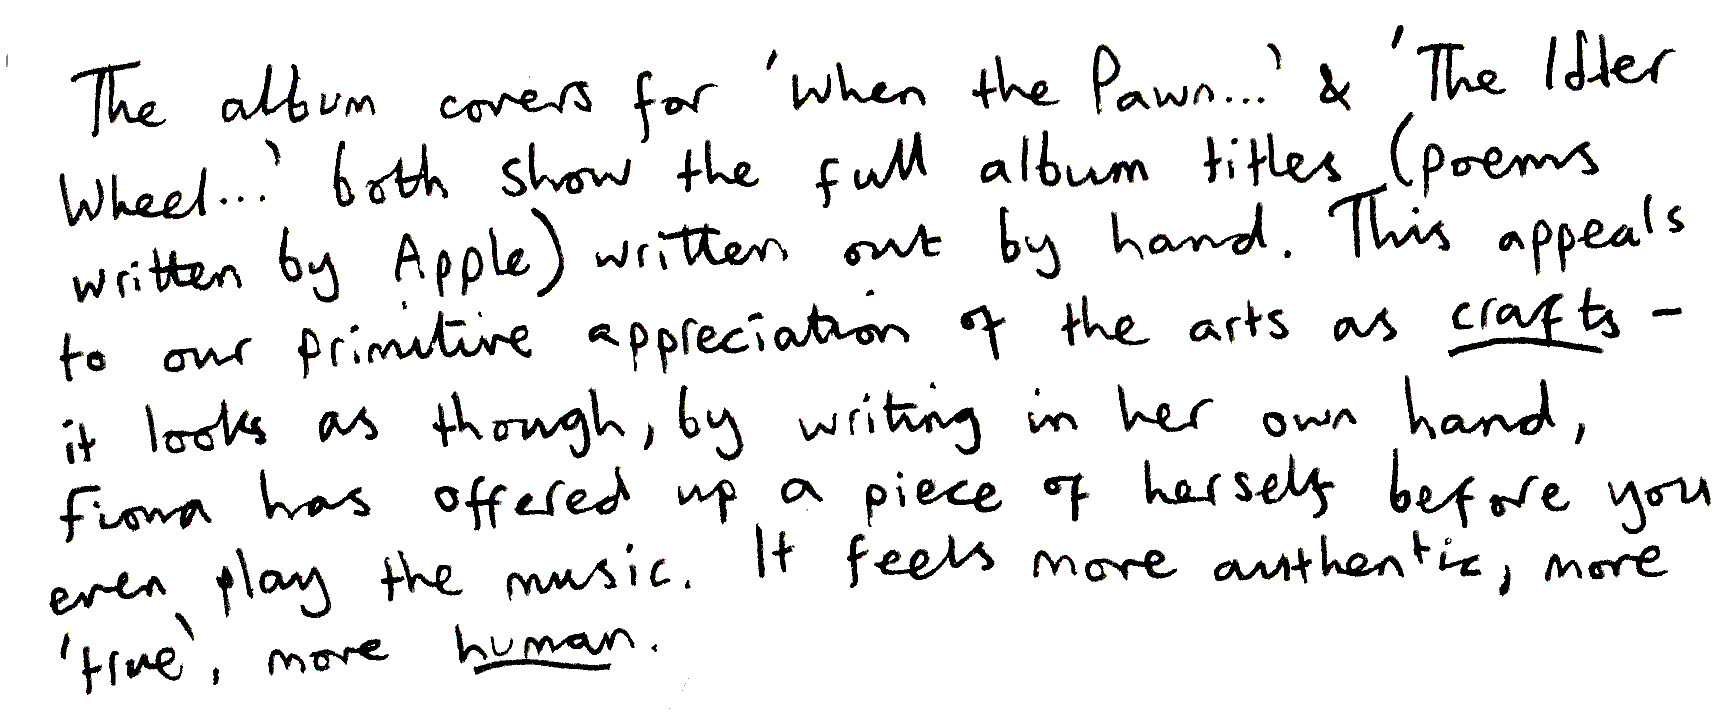 The album covers for 'When the Pawn...' & 'The Idler
Wheel...' both show the full album titles (poems
written by Apple) written out by hand. This appeals
to our primitive appreciation of the arts as crafts -
it looks as though, by writing in her own hand,
Fiona has offered up a piece of herself before you
even play the music. It feels more authentic, more
'true', more human.